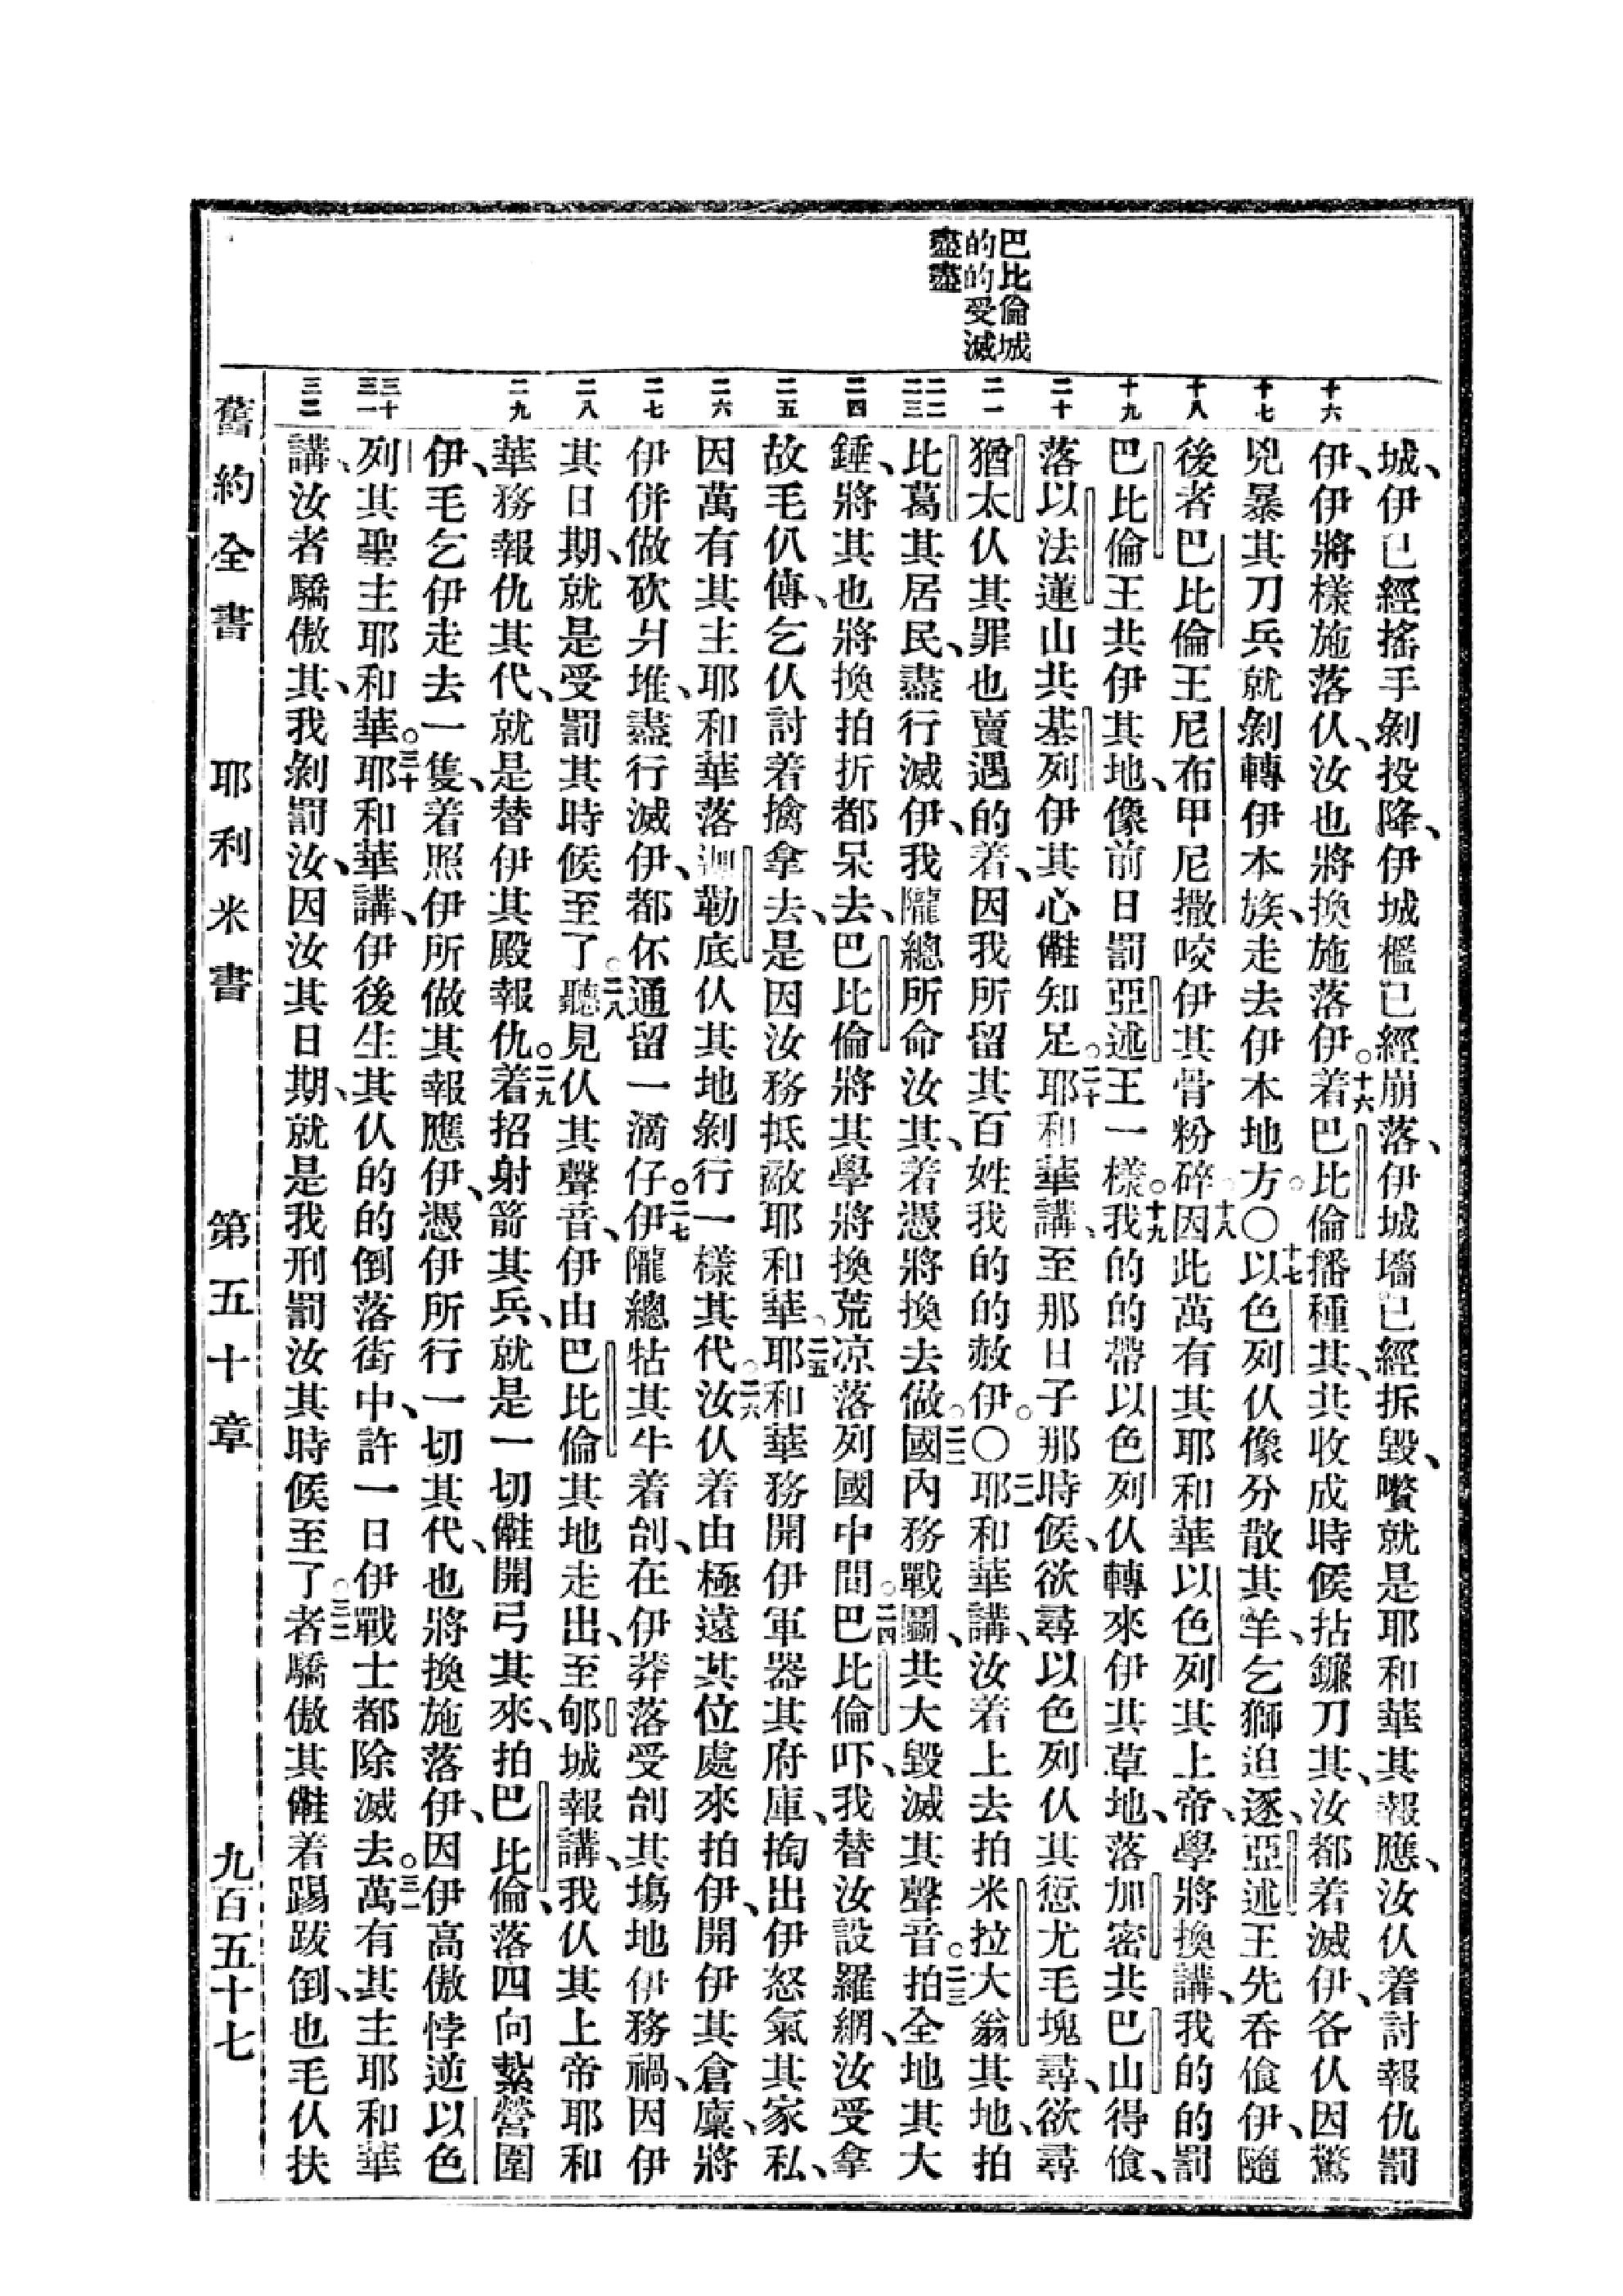 巴比倫城
的的受滅
盡盡
十六
十七
十八
十九
二十
二一
二二
二三
二四
二五
二六
二七
二八
二九
三十
三一
三二
城、伊已經搖手剝投降、伊城檻已經崩落、伊城墻已經拆毀、嚽就是耶和華其報應、汝仈着討報仇罰
伊、伊將樣施落仈、汝也將換施落伊。十六着巴比倫播種其、共收成時候拈鐮刀其、汝都着滅伊、各仈因驚
兇暴其刀兵就剝轉伊本族、走去伊本地方。〇十七以色列仈像分散其羊、乞獅迫逐、亞述王先吞飧伊、隨
後者巴比倫王尼布甲尼撒咬伊其骨粉碎。十八因此萬有其耶和華以色列其上帝、學將換講、我的的罰
巴比倫王共伊其地、像前日罰亞述王一樣。十九我的的帶以色列仈、轉來伊其草地、落加密共巴山得飧、
落以法蓮山共基列伊其心儺知足。二十耶和華講、至那日子那時候、欲尋以色列仈其愆尤毛塊尋、欲尋
猶太仈其罪也賣遇的着、因我所留其百姓我的的赦伊。〇二一耶和華講、汝着上去拍米拉大翁其地、拍
比葛其居民、盡行滅伊、我隴總所命汝其、着憑將換去做。二二國內務戰鬭、共大毀滅其聲音。二三拍全地其大
錘、將其也將換拍折都呆去、巴比倫將其學將換荒凉落列國中間。二四巴比倫吓、我替汝設羅網、汝受拿
故毛仈傳、乞仈討着擒拿去、是因汝務抵敵耶和華。二五耶和華務開伊軍器其府庫、掏出伊怒氣其家私、
因萬有其主耶和華落迦勒底仈其地剝行一樣其代。二六汝仈着由極遠其位處來拍伊、開伊其倉廩、將
伊併做砍爿堆、盡行滅伊、都伓通留一滴仔。二七伊隴總牯其牛着刣、在伊莽落受刣其塲地、伊務禍、因伊
其日期、就是受罰其時候至了。二八聽見仈其聲音、伊由巴比倫其地走出、至郇城報講、我仈其上帝耶和
華務報仇其代、就是替伊其殿報仇。二九着招射箭其兵、就是一切儺開弓其來、拍巴比倫、落四向紮營圍
伊、毛乞伊走去一隻、着照伊所做其報應伊、憑伊所行一切其代、也將換施落伊、因伊高傲悖逆以色
列其聖主耶和華。三十耶和華講、伊後生其仈的的倒落街中、許一日伊戰士都除滅去。三一萬有其主耶和華
講、汝者驕傲其、我剝罰汝、因汝其日期、就是我刑罰汝其時候至了。三二者驕傲其儺着踢跋倒、也毛仈扶
舊約全書　耶利米書　第五十章　九百五十七